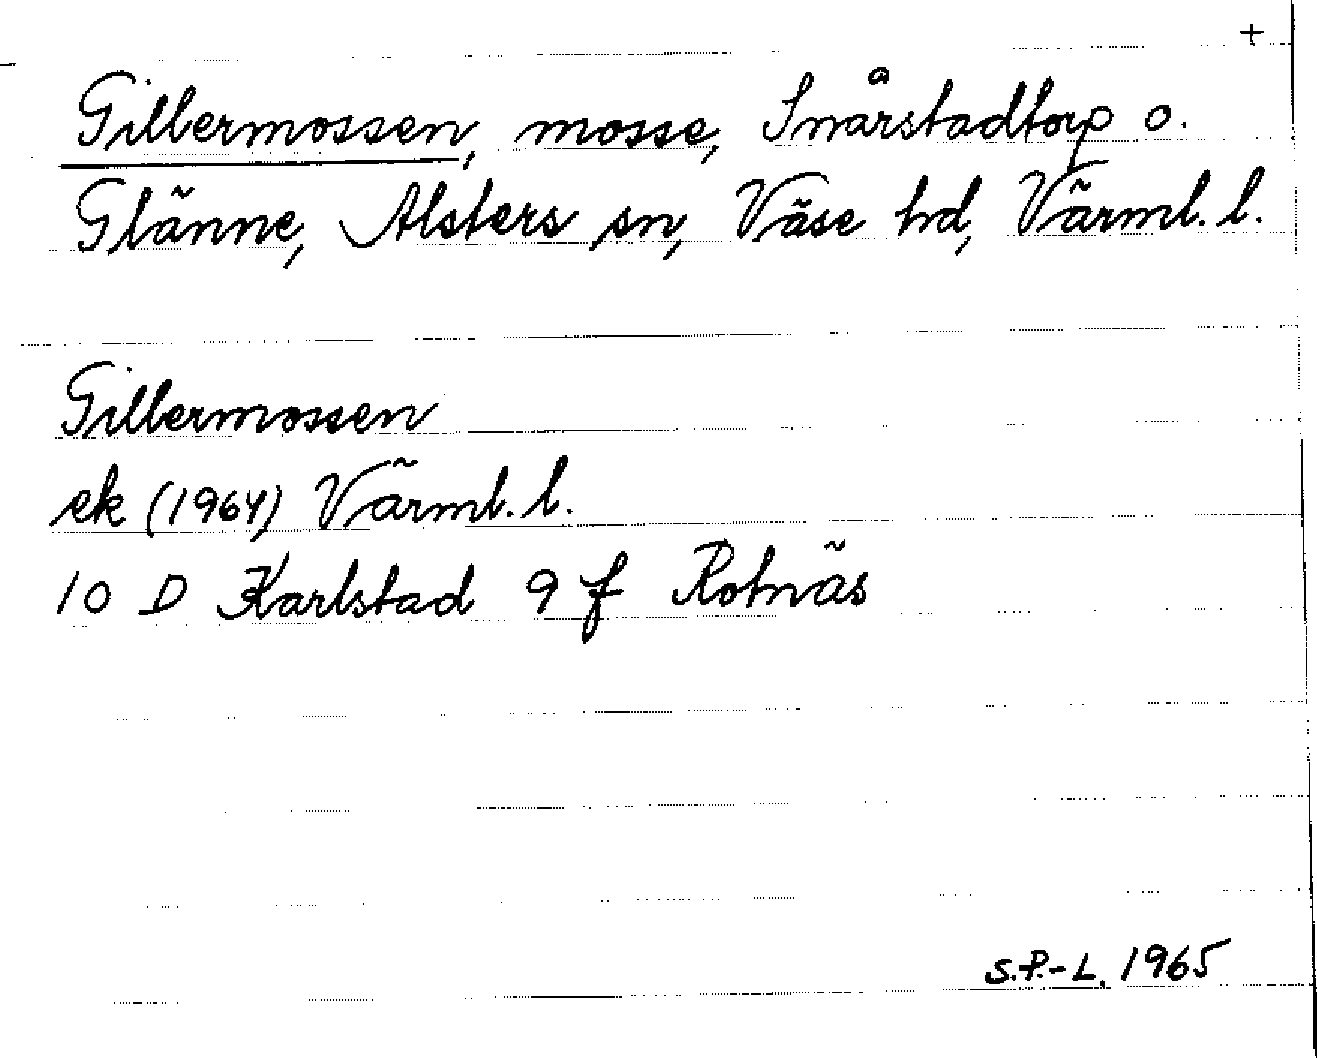 +
Gillermossen, mosse, Snårstadtorp o.
Glänne, Alsters sn, Väse hd, Värml. l.
Gillermossen
ek (1964) Värml. l.
10 D Karlstad 9 f Rotnäs
S.P.-L. 1965